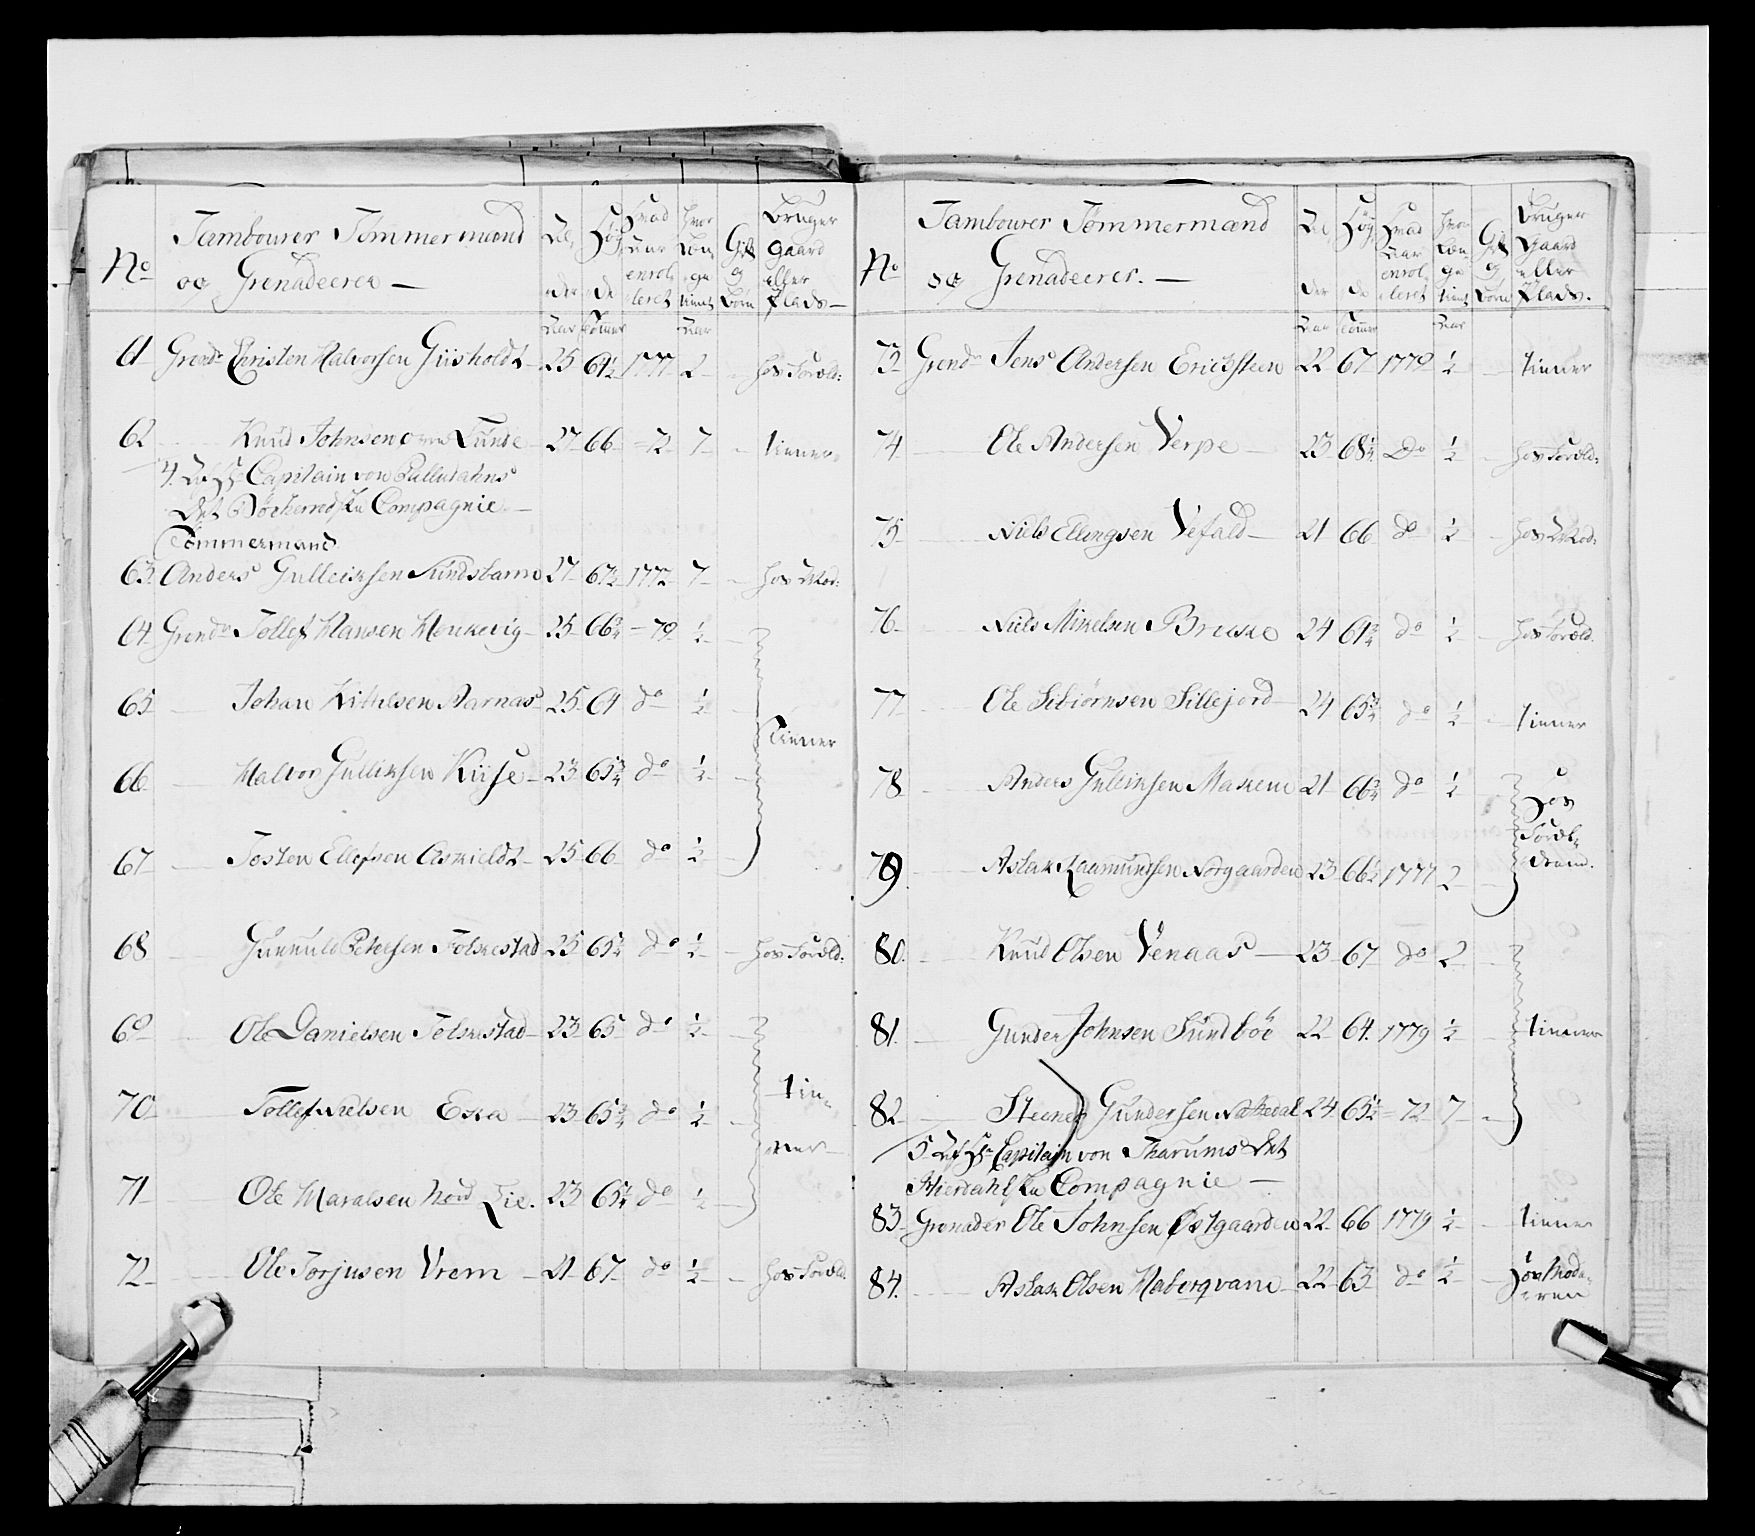 No Tambourer Tömmermænd og Grenadeerer — Höyde Hvad Aar enrolleret Gift og Börn Bruger Gaard eller Plads —
Aar Tomer Aar
61 Grend. Christen Halvorsen Giisholdt 25 64½ 1777 2 - hos Foræld:
62 Knud Johnsen Lunde 27 66 = 72 7 - tiener
4. Capitain von
Compagnie —
Tömmermand
63. Anders Gulleichsen Sundsbarm 27 67½ 1772 7 - hos
64 Grend. Tollef Hansen 25 66¾ = 79 ½ -
65 Johan Kittilsen Aarnæs 25 64 do ½ -
Tiener
66 Halvor Gulliksen Kiise 23 65¾ do ½ -
67 Tosten Ellefsen Askieldt 25 66 do ½ -
68 Gunnuld Petersen Folkestad 25 65¾ do ½ - hos Foræld:
69 Ole Danielsen Folkestad 23 65 do ½ -
70 Tollef Nielsen Eska 23 65¾ do ½ -
tiener
71 Ole Haralsen Nord Lie. 23 65¾ do ½ -
72 Ole Torjusen Vrem 21 67 do ½ - hos Foræld.
No Tambourer Tömmermænd og Grenadeerer. — Höyde Hvad Aar enrolleret Gift og Börn Bruger Gaard eller Plads.
Aar Tomer Aar
73 Grend. Jens Andersen Erichsteen 22 67 1779 ½ - tiener
74 Ole Andersen Verpe 23 68¼ Do ½ - hos Foræld:
75 Niels Ellingsen Vefald 21 66 do ½ - hos Mod:
76 Niels Mikelsen 24 64¾ do ½ - hos Foræld.
77 Ole Sibiörnsen Sillejord 24 65¾ do ½ - tiener
78 Anders Gulleiksen 21 66¾ do ½ -
hos Forældrene.
79. Aslak Raamundsen Norgaarden 23 66½ 1777 2 -
80. Knud Olsen Venaas 23 67 do 2 -
81. Gunder Johnsen Sundböe 22 64. 1779 ½ - tiener
82 Steener Gundersen 24 65½ = 72 7 -
5 Capitain von Det
Hierdahlske Compagnie —
83 Grenader Ole Johnsen Östgaarden 22 66 1779 ½ - tiener
84. Aslak Olsen Haberqvam 22 63 do ½ - hos Moderen